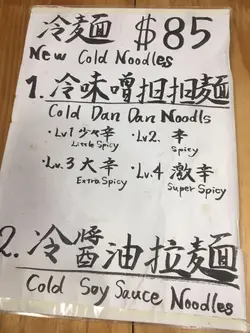 冷麺 $85
New Cold Noodles
1. 冷味噌担担麺
Cold Dan Dan Noodls
・Lv.1 少々辛 ・Lv2. 辛
Little Spicy Spicy
・Lv.3 大辛 ・Lv.4 激辛
Extra Spicy Super Spicy
2. 冷醤油拉麺
Cold Soy Sauce Noodles